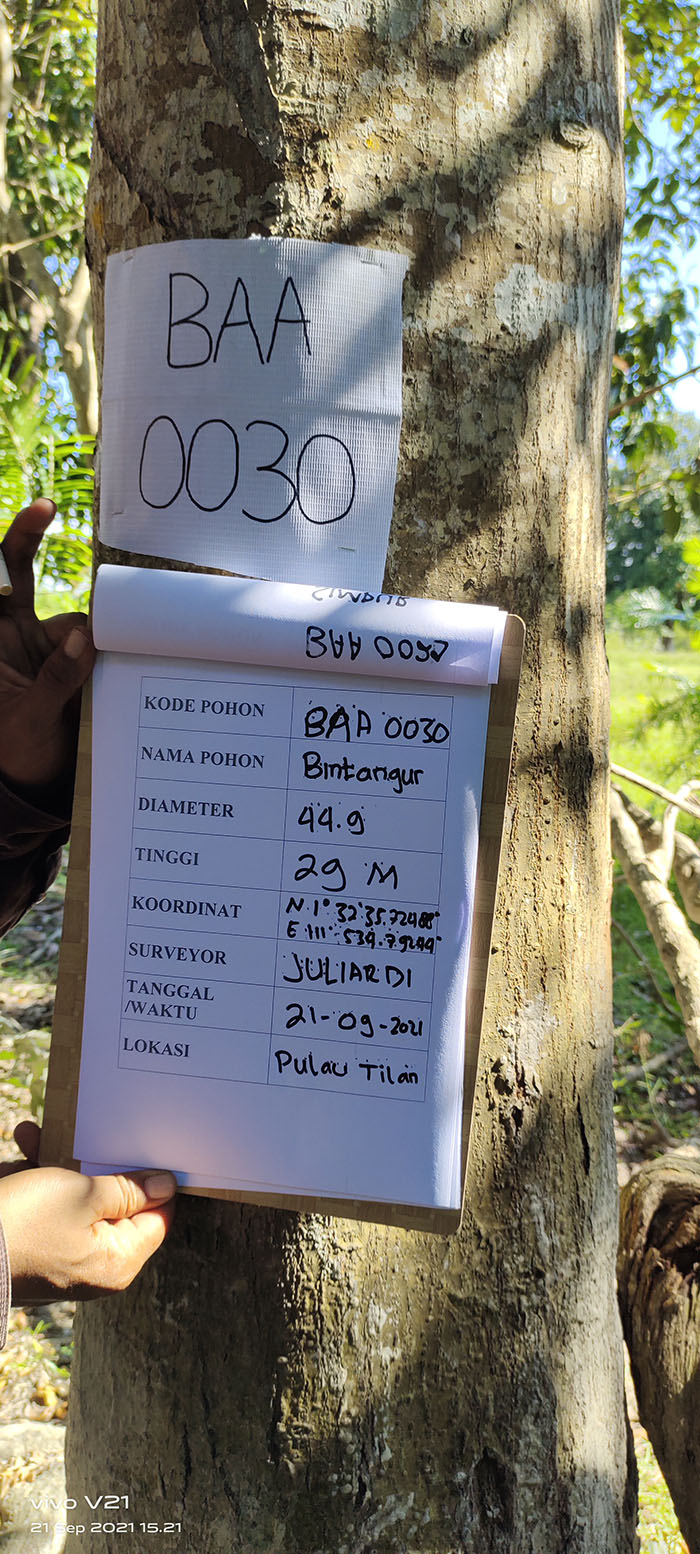 BAA
0030
BAA 0030
KODE POHON BAA 0030
NAMA POHON Bintangur
DIAMETER 44.9
TINGGI 29 M
KOORDINAT N. 1° 32'35.72488"
E 111°
SURVEYOR JULIARDI
TANGGAL
/WAKTU 21-09-2021
LOKASI Pulau Tilan
vivo V21
21 Sep 2021 15.21